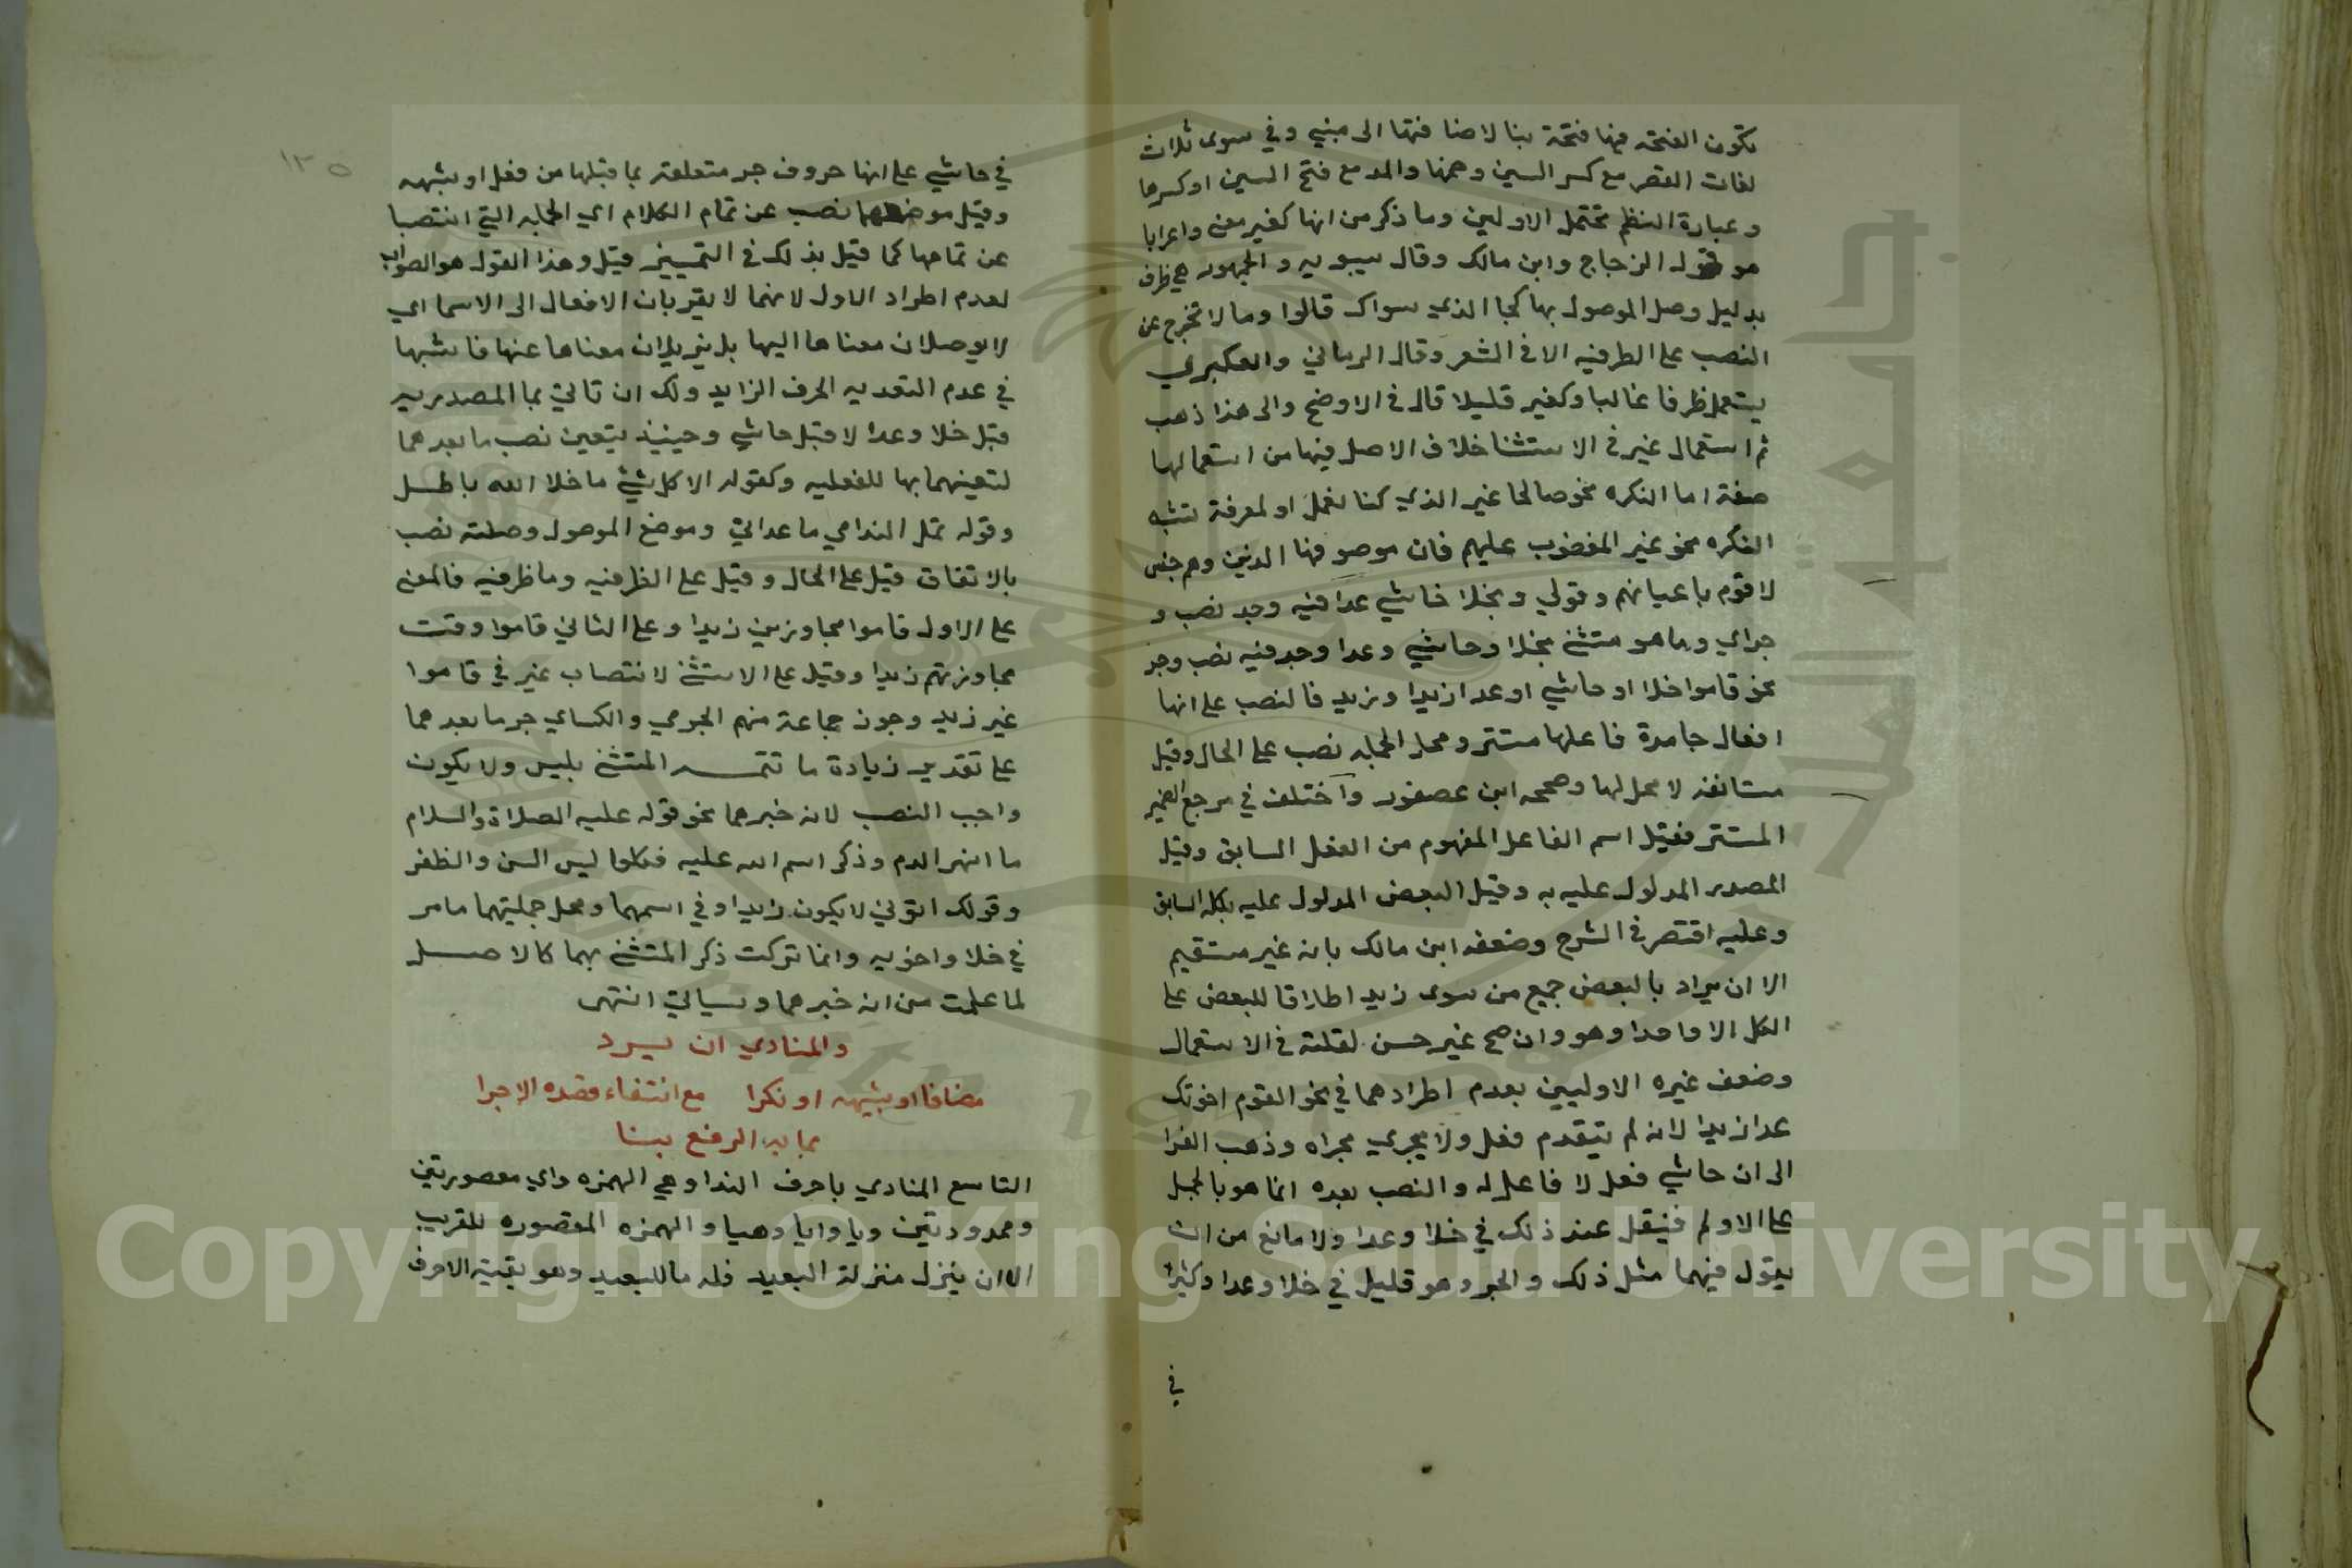 تكون الفتحه فيها فتحة بنا لاضا فتها الى مبني وفي سوى ثلاث
لغات القصر مع كسر السين وضمها والمد مع فتح السين او كسرها
وعبارة النظم تحتمل الاولين وما ذكر من انها كغير معنى واعرابا
هو قول الزجاج وابن مالك وقال سيبويه والجمهور هي ظرف
بدليل وصل الموصول بها كجا الذي سواك قالوا وما لا تخرج عن
النصب على الظرفيه الا في الشعر وقال الرماني والعكبري
يستعمل ظرفا غالبا وكغير قليلا قال في الاوضح والى هذا ذهب
ثم استعمال غير في الاستثنا خلاف الاصل فيها من استعمالها
صفة اما النكره نحو صالحا غير الذي كنا نعمل او لمعرفة تشبه
النكره نحو غير المغضوب عليهم فان موصوفها الذين وهم جنس
لا قوم باعيانهم وقولي وبخلا حاشي عدا فيه وجد نصب و
جر اي وما هو مستثنى بخلا وحاشي وعدا وجد فيه نصب وجر
نحو قاموا خلا او حاشي او عدا زيدا وزيد فالنصب على انها
افعال جامدة فاعلها مستتر ومحل الجمله نصب على الحال وقيل
مستانفه لا محل لها وصححه ابن عصفور واختلف في مرجع الضمير
المستتر فقيل اسم الفاعل المفهوم من الفعل السابق وقيل
المصدر المدلول عليه به وقيل البعض المدلول عليه بكله السابق
وعليه اقتصر في الشرح وضعفه ابن مالك بانه غير مستقيم
الا ان يراد بالبعض جميع من سوى زيد اطلاقا للبعض على
الكل الا واحدا وهو وان صح غير حسن لقلته في الاستعمال
وضعف غيره الاوليين بعدم اطرادهما في نحو القوم اخوتك
عدا زيدا لانه لم يتقدم فعل ولا يجري مجراه وذهب الفرا
الى ان حاشي فعل لا فاعل له والنصب بعده انما هو بالحمل
على الا ولم فينقل عند ذلك في خلا وعدا ولا مانع من ان
يقول فيهما مثل ذلك والجر وهو قليل في خلا وعدا وكثيرا
في
١٣٥
في حاشي على انها حروف جر متعلقة بما قبلها من فعل او شبهه
وقيل موضعهما نصب عن تمام الكلام اي الجمله التي انتصبا
عن تمامها كما قيل بذلك في التمييز قيل وهذا القول هو الصواب
لعدم اطراد الاول لانهما لا يقربان الافعال الى الاسما اي
لا يوصلان معناها اليها بل يزيلان معناها عنها فاشبها
في عدم التعديه الحرف الزايد ولك ان تاتي بما المصدريه
قبل خلا وعدا لا قبل حاشي وحينيذ يتعين نصب ما بعدهما
لتعينهما بها للفعليه وكقوله الا كل شي ما خلا الله باطل
وقوله تمل الندامي ما عداني وموضع الموصول وصلته نصب
بالاتفاق قيل على الحال وقيل على الظرفيه وما ظرفيه فالمعنى
على الاول قاموا مجاوزين زيدا وعلى الثاني قاموا وقت
مجاوزتهم زيدا وقيل على الاستثنى لانتصاب غير في قاموا
غير زيد وجوز جماعة منهم الجرمي والكساي جر ما بعدهما
على تقدير زيادة ما تتمه المستثنى بليس ولا يكون
واجب النصب لانه خبرهما نحو قوله عليه الصلاة والسلام
ما انهر الدم وذكر اسم الله عليه فكلوا ليس السن والظفر
وقولك اتوني لا يكون زيدا وفي اسمهما ومحل جمليتهما ما مر
في خلا واخويه وانما تركت ذكر المستثنى بهما كالاصل
لما علمت من انه خبرهما وسياتي انتهى
والمنادي ان يرد
مضافا او شبيهه او نكرا مع انتفاء قصده الاجرا
بما به الرفع بنا
التاسع المنادي باحرف الندا وهي الهمزه واي مقصورتين
وممدودتين ويا وايا وهيا والهمزه المقصوره للقريب
الا ان ينزل منزلة البعيد فله ما للبعيد وهو بقية الاحرف
Copyright © King Saud University